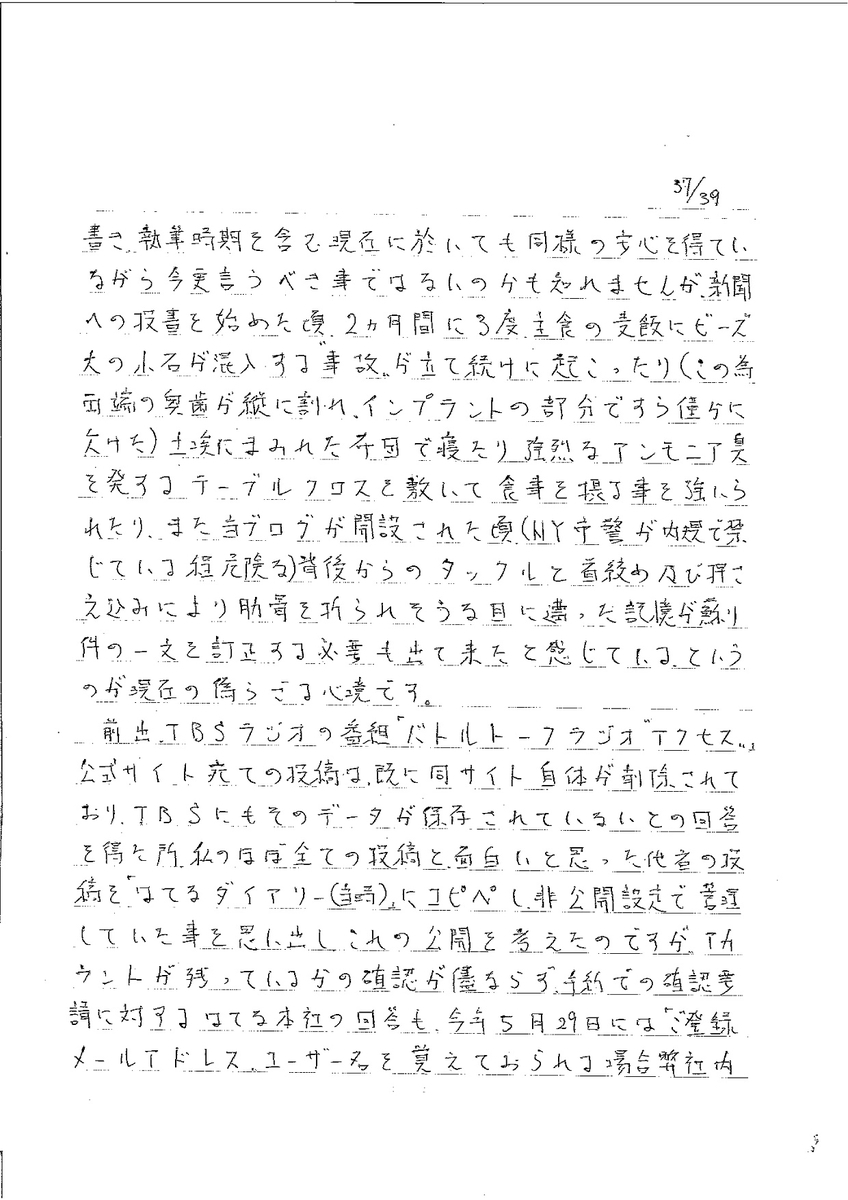 37/39
書き、執筆時期を含む現在に於いても同様の安心を得てい
ながら今更言うべき事ではないのかも知れませんが、新聞
への投書を始めた頃、2ヵ月間に3度主食の麦飯にビーズ
大の小石が混入する〝事故〟が立て続けに起こったり(この為
両端の奥歯が縦に割れ、インプラントの部分ですら僅かに
欠けた)土埃にまみれた布団で寝たり強烈なアンモニア臭
を発するテーブルクロスを敷いて食事を摂る事を強いら
れたり、また当ブログが開設された頃(NY市警が内規で禁
じている程危険な)背後からのタックルと首絞め及び押さ
え込みにより肋骨を折られそうな目に遭った記憶が蘇り
件の一文を訂正する必要も出て来たと感じている、という
のが現在の偽らざる心境です。
前出、TBSラジオの番組「バトルトークラジオ〝アクセス〟」
公式サイト宛ての投稿は、既に同サイト自体が削除されて
おり、TBSにもそのデータが保存されていないとの回答
を得た所、私のほぼ全ての投稿と面白いと思った他者の投
稿を「はてなダイアリー(当時)」にコピペし、非公開設定で管理
していた事を思い出しこれの公開を考えたのですが、アカ
ウントが残っているかの確認が儘ならず、手紙での確認要
請に対するはてな本社の回答も、今年5月29日には「ご登録
メールアドレス、ユーザー名を覚えておられる場合弊社内